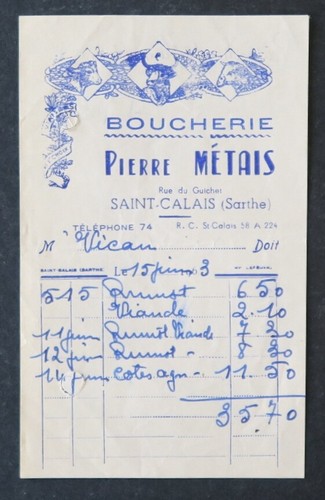 BOUCHERIE
PIERRE MÉTAIS
Rue du Guichet
SAINT-CALAIS (Sarthe)
TÉLÉPHONE 74 R. C. St Calais 58 A 224
M Vican Doit
SAINT-CALAIS (SARTHE) Le 15 juin 3
515 Rumot 6 50
Viande 2.10
11 juin Viande 7 30
12 juin
14 juin cotes agn - 11.50
35.70